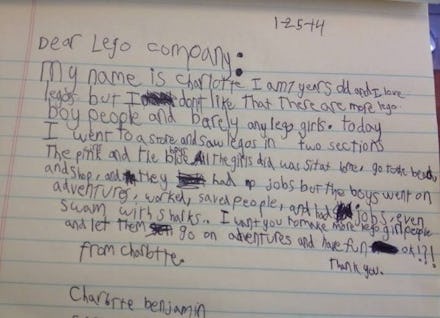 1-25-14
Dear Lego company:
My name is Charlotte I am 7 years old and I love
legos but I don't like that there are more lego
boy people and barely any lego girls. today
I went to a store and saw legos in two sections
The pink and the blue. boys All the girls did was sit at home, go to the beach,
and shop, and they had no jobs but the boys went on
adventures, worked, saved people, and had jobs, even
swam with sharks. I want you to make more lego girl people
and let them go on adventures and have fun ok!?!
Thank you.
from Charlotte.
Charlotte benjamin